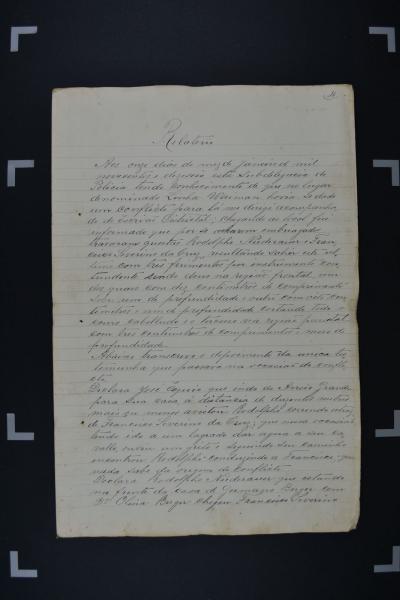 4
Relatorio
Aos onze dias do mez de Janeiro de mil
novecentos e dezeseis esta Subdelegacia de
Policia tendo conhecimento de que no lugar
denominado Linha havia se dado
um conflicto para la me dirigi acompanha-
do do escrivão Districtal; chegando ao local fui
informado que por se acharem embriagados
travaram questão Rodolpho Niederauer e Fran-
cisco Severino da Cruz, resultando sahir este ul-
timo com tres ferimentos por instrumento con-
tundente sendo dous na região frontal, um
dos quaes com dez centimetros de comprimento
sobre um de profundidade e outro com oito cen-
timetros e um de profundidade cortando todo o
couro cabelludo e o terceiro na região frontal
com tres centimetros de comprimento e meio de
profundidade.
Abaixo transcrevo o depoimento da unica tes-
temunha que passava na occasião do confli-
cto.
Declara José que vindo do Grande
para sua casa á distancia de duzentos metros
mais ou menos avistou Rodolpho correndo atraz
de Francisco Severino da Cruz; que nessa occasião
tendo ido a um lagoão dar agua a seu ca-
vallo, ouviu um grito e seguindo seu caminho
encontrou Rodolpho conduzindo a Francisco; que
nada sabe da origem do conflicto.
Declara Rodolpho Niederauer que estando
na frente da casa de Germano Berger com
Berger chegou Francisco Severino